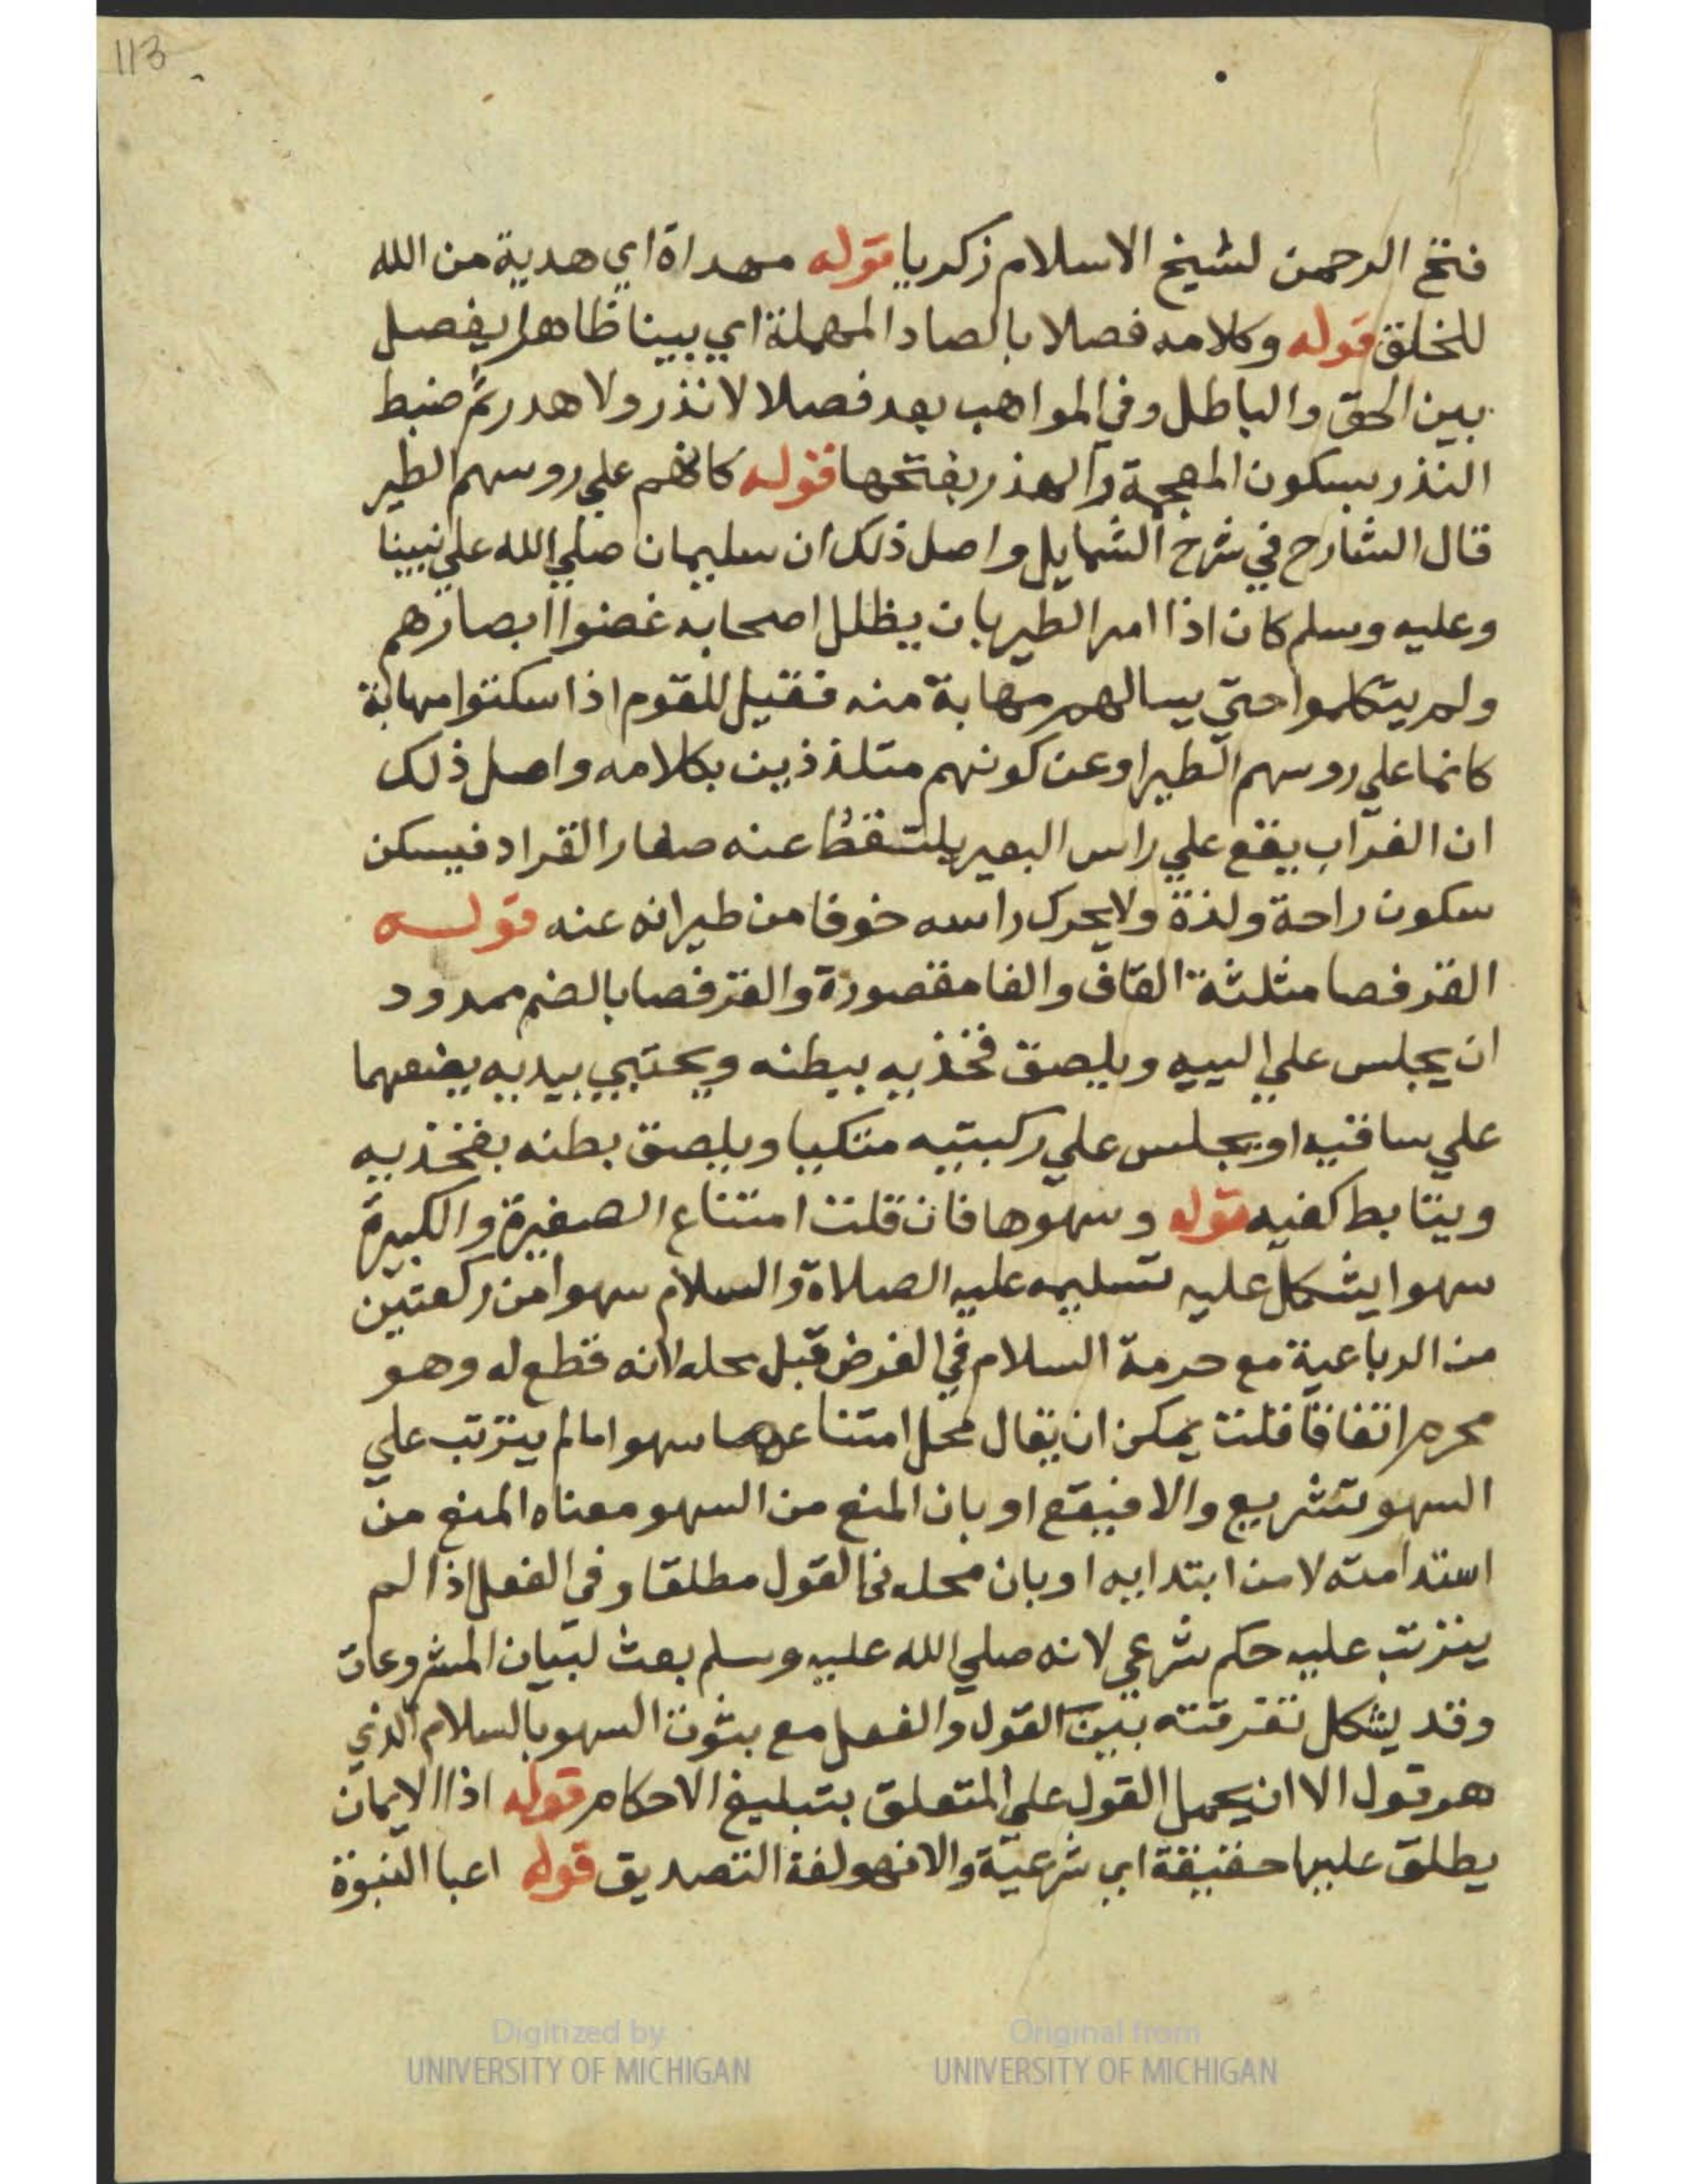 113
فتح الرحمن لشيخ الاسلام زكريا قوله مهداة اي هدية من الله
للخلق قوله وكلامه فصلا بالصاد المهملة اي بينا ظاهرا يفصل
بين الحق والباطل وفي المواهب بعد فصلا لا نذر ولا هدر ثم ضبط
النذر بسكون المعجمة والهذر بفتحها قوله كانهم علي روسهم الطير
قال الشارح في شرح الشمايل واصل ذلك ان سليمان صلي الله علي نبينا
وعليه وسلم كان اذا امر الطير بان يظلل اصحابه غضوا ابصارهم
ولم يتكلموا حتي يسالهم مهابة منه فقيل للقوم اذا سكتوا مهابة
كانما علي روسهم الطير او عن كونهم متلذذين بكلامه واصل ذلك
ان الغراب يقع علي راس البعير يلتقط عنه صغار القراد فيسكن
سكون راحة ولذة ولا يحرك راسه خوفا من طيرانه عنه قوله
القرفصا مثلثة القاف والفا مقصورة والقرفصا بالضم ممدود
ان يجلس علي الييه ويلصق فخذيه ببطنه ويحتبي بيديه يضعهما
علي ساقيه او يجلس علي ركبتيه متكيا ويلصق بطنه بفخذيه
ويتابط كفيه قوله وسهوها فان قلت امتناع الصغيرة والكبيرة
سهوا يشكل عليه تسليمه عليه الصلاة والسلام سهوا من ركعتين
من الرباعية مع حرمة السلام في الفرض قبل محله لانه قطع له وهو
محرم اتفاقا قلت يمكن ان يقال محل امتناعهما سهوا ما لم يترتب علي
السهو تشريع والا فيقع او بان المنع من السهو معناه المنع من
استدامته لا من ابتدايه او بان محله في القول مطلقا وفي الفعل اذا لم
يترتب عليه حكم شرعي لانه صلي الله عليه وسلم بعث لبيان المشروعات
وقد يشكل تفرقته بين القول والفعل مع بثوت السهو بالسلام الذي
هو قول الا ان يحمل القول علي المتعلق بتبليغ الاحكام قوله اذا الايمان
يطلق عليها حقيقة اي شرعية والا فهو لغة التصديق قوله اعبا النبوة
Digitized by
UNIVERSITY OF MICHIGAN
Original from
UNIVERSITY OF MICHIGAN